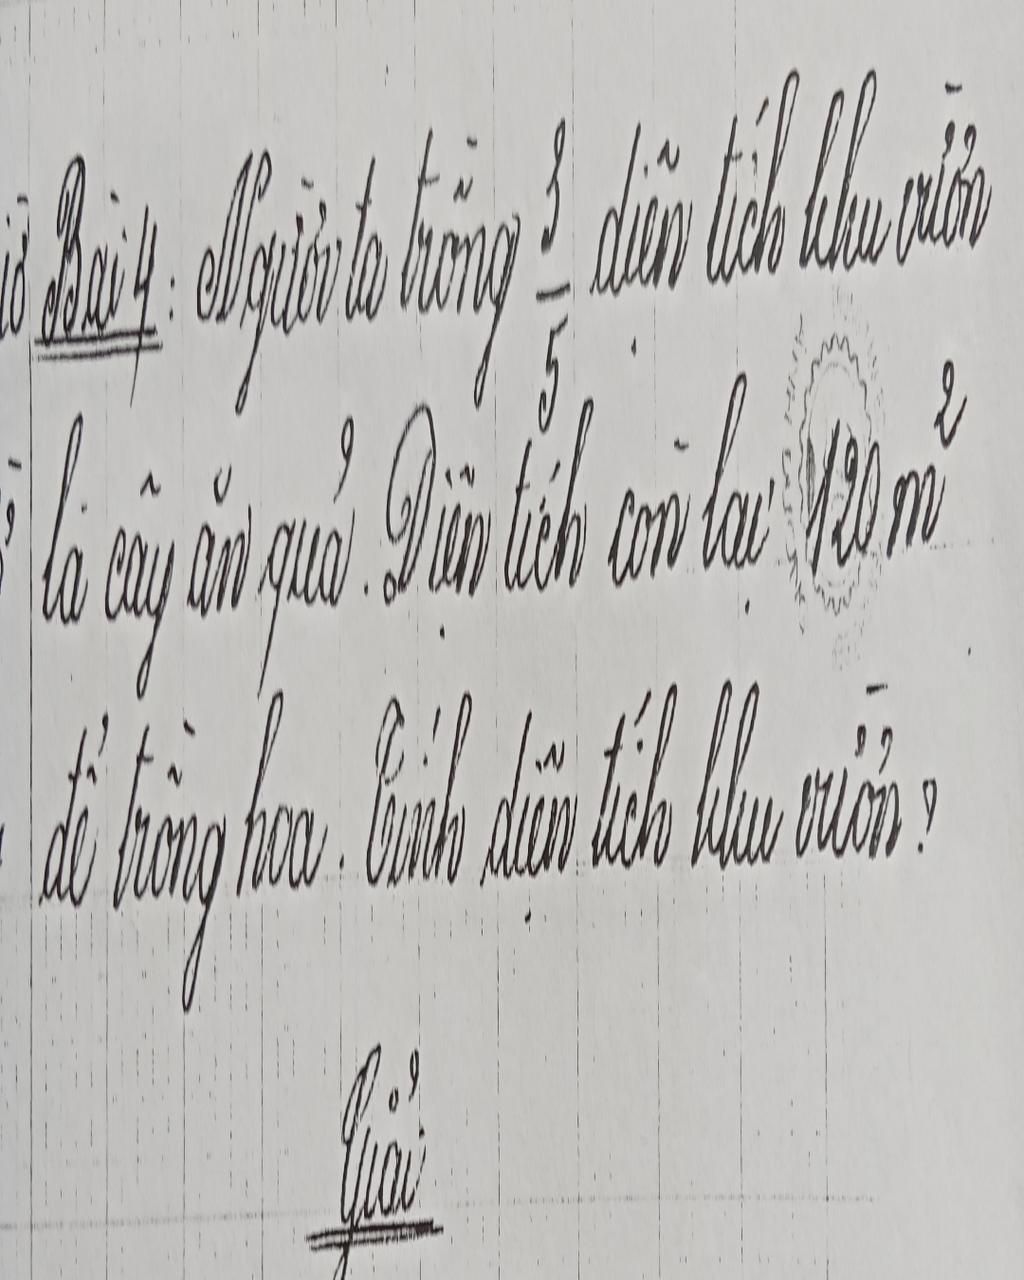 Bài 4: Người ta trồng 3/5 diện tích khu vườn
là cây ăn quả. Diện tích còn lại 120 m²
để trồng hoa. Tính diện tích khu vườn?
Giải